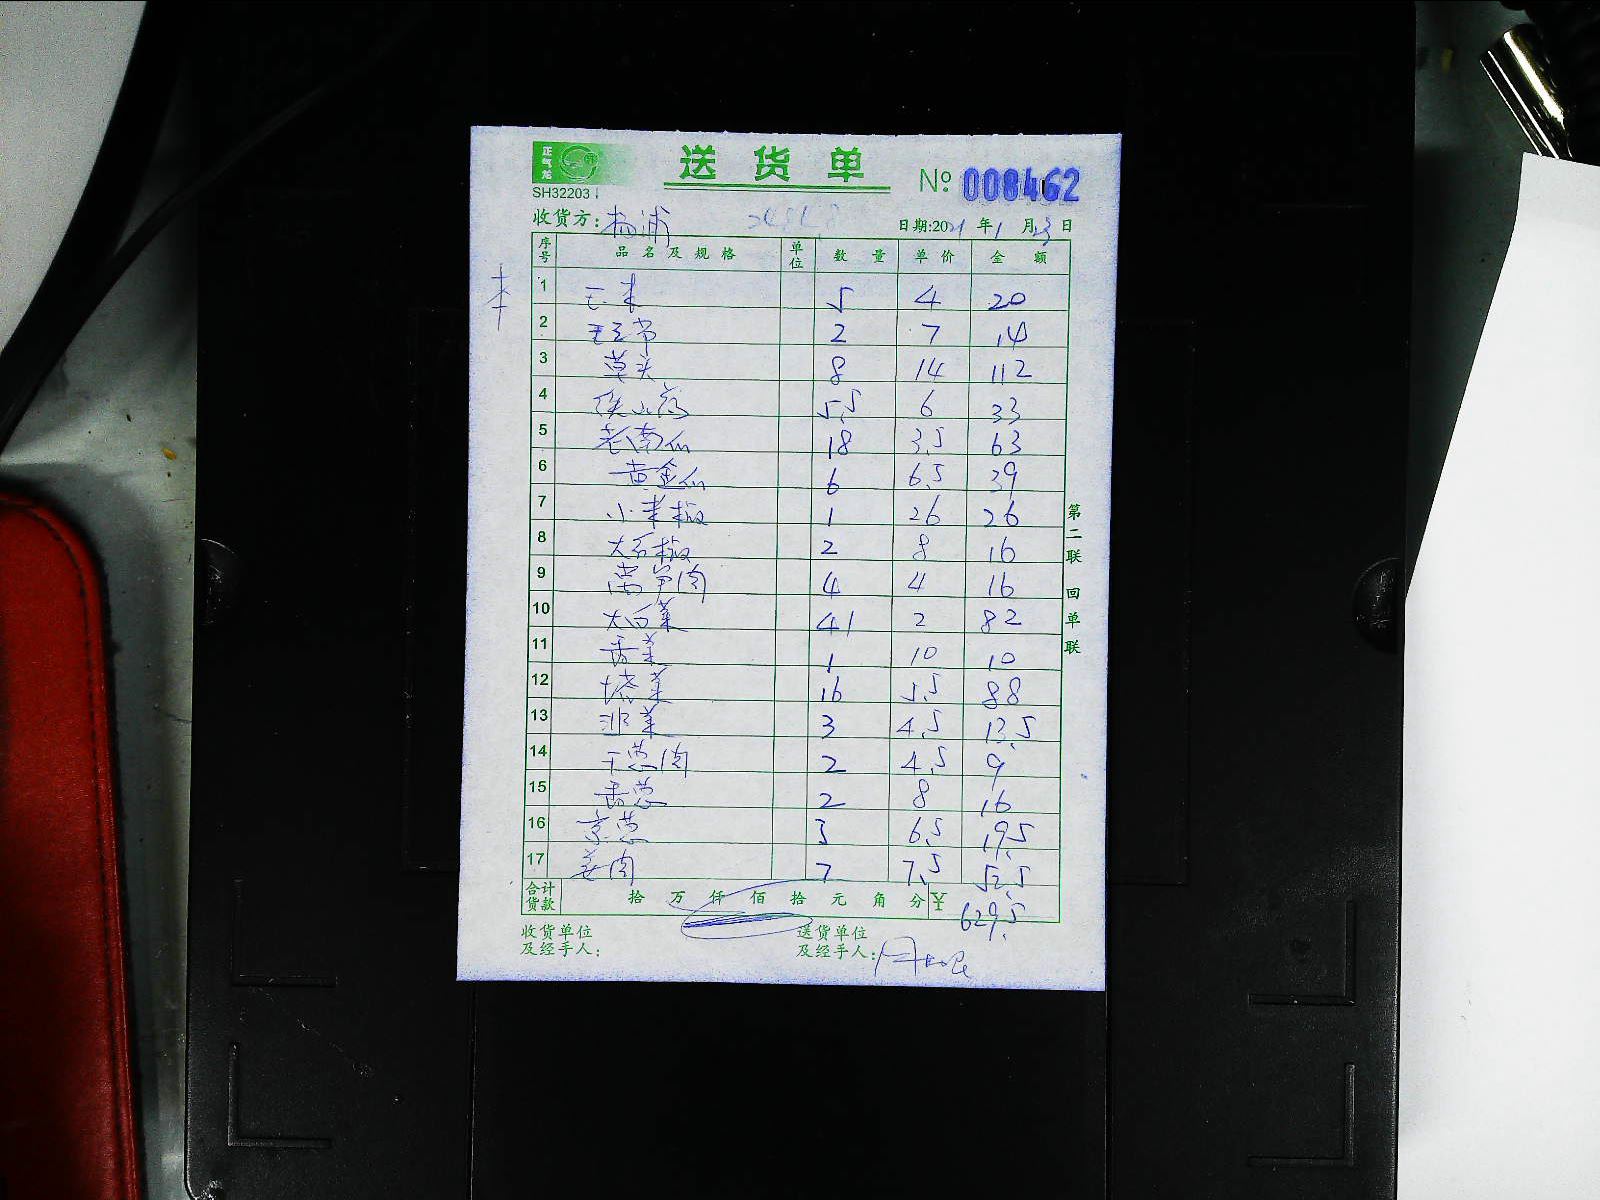 正气龙
送货单
SH32203
№ 008462
收货方: 杨浦 日期:2021年1月23日
序号 品名及规格 单位 数量 单价 金额
1 玉米 5 4 20
2 2 7 14
3 8 14 112
4 铁山药 5.5 6 33
5 老南瓜 18 3.5 63
6 黄金瓜 6 6.5 39
7 小米椒 1 26 26
8 大石椒 2 8 16
9 莴笋肉 4 4 16
10 大白菜 41 2 82
11 香菜 1 10 10
12 塔菜 16 5.5 88
13 韭菜 3 4.5 13.5
14 干葱肉 2 4.5 9
15 香葱 2 8 16
16 京葱 3 6.5 19.5
17 姜肉 7 7.5 52.5
合计货款 拾 万 仟 佰 拾 元 角 分 ¥ 629.5
收货单位及经手人: 送货单位及经手人:
第二联 回单联